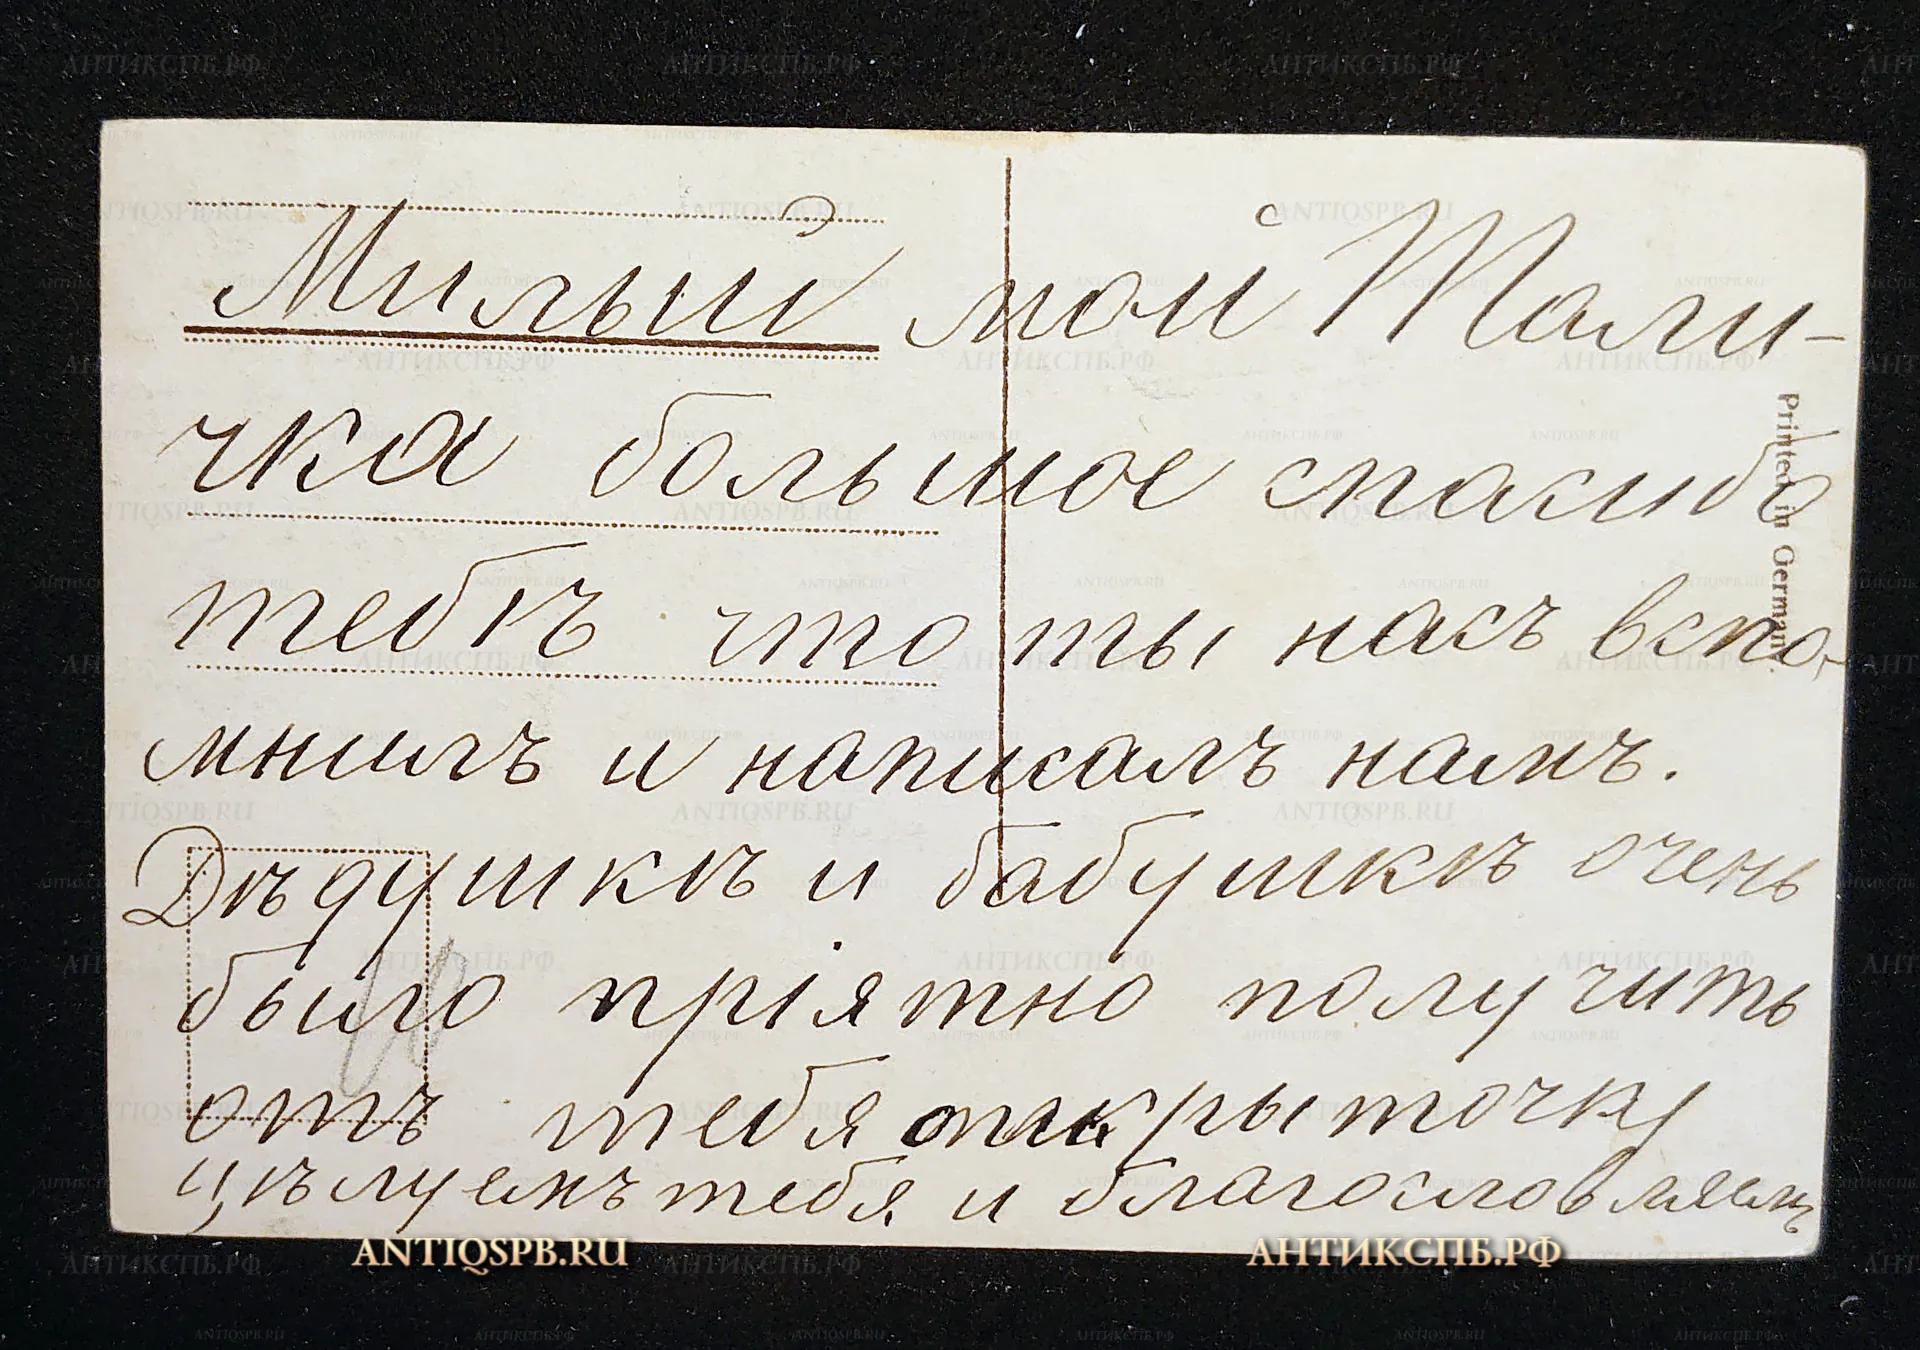 Милый мой Толи-
чка большое спасибо
тебѣ что ты насъ вспо-
мнилъ и написалъ намъ.
Дѣдушкѣ и бабушкѣ очень
было пріятно получить
отъ тебя открыточку
цѣлуемъ тебя и благословляемъ
Printed in Germany.
ANTIQSPB.RU
АНТИКСПБ.РФ